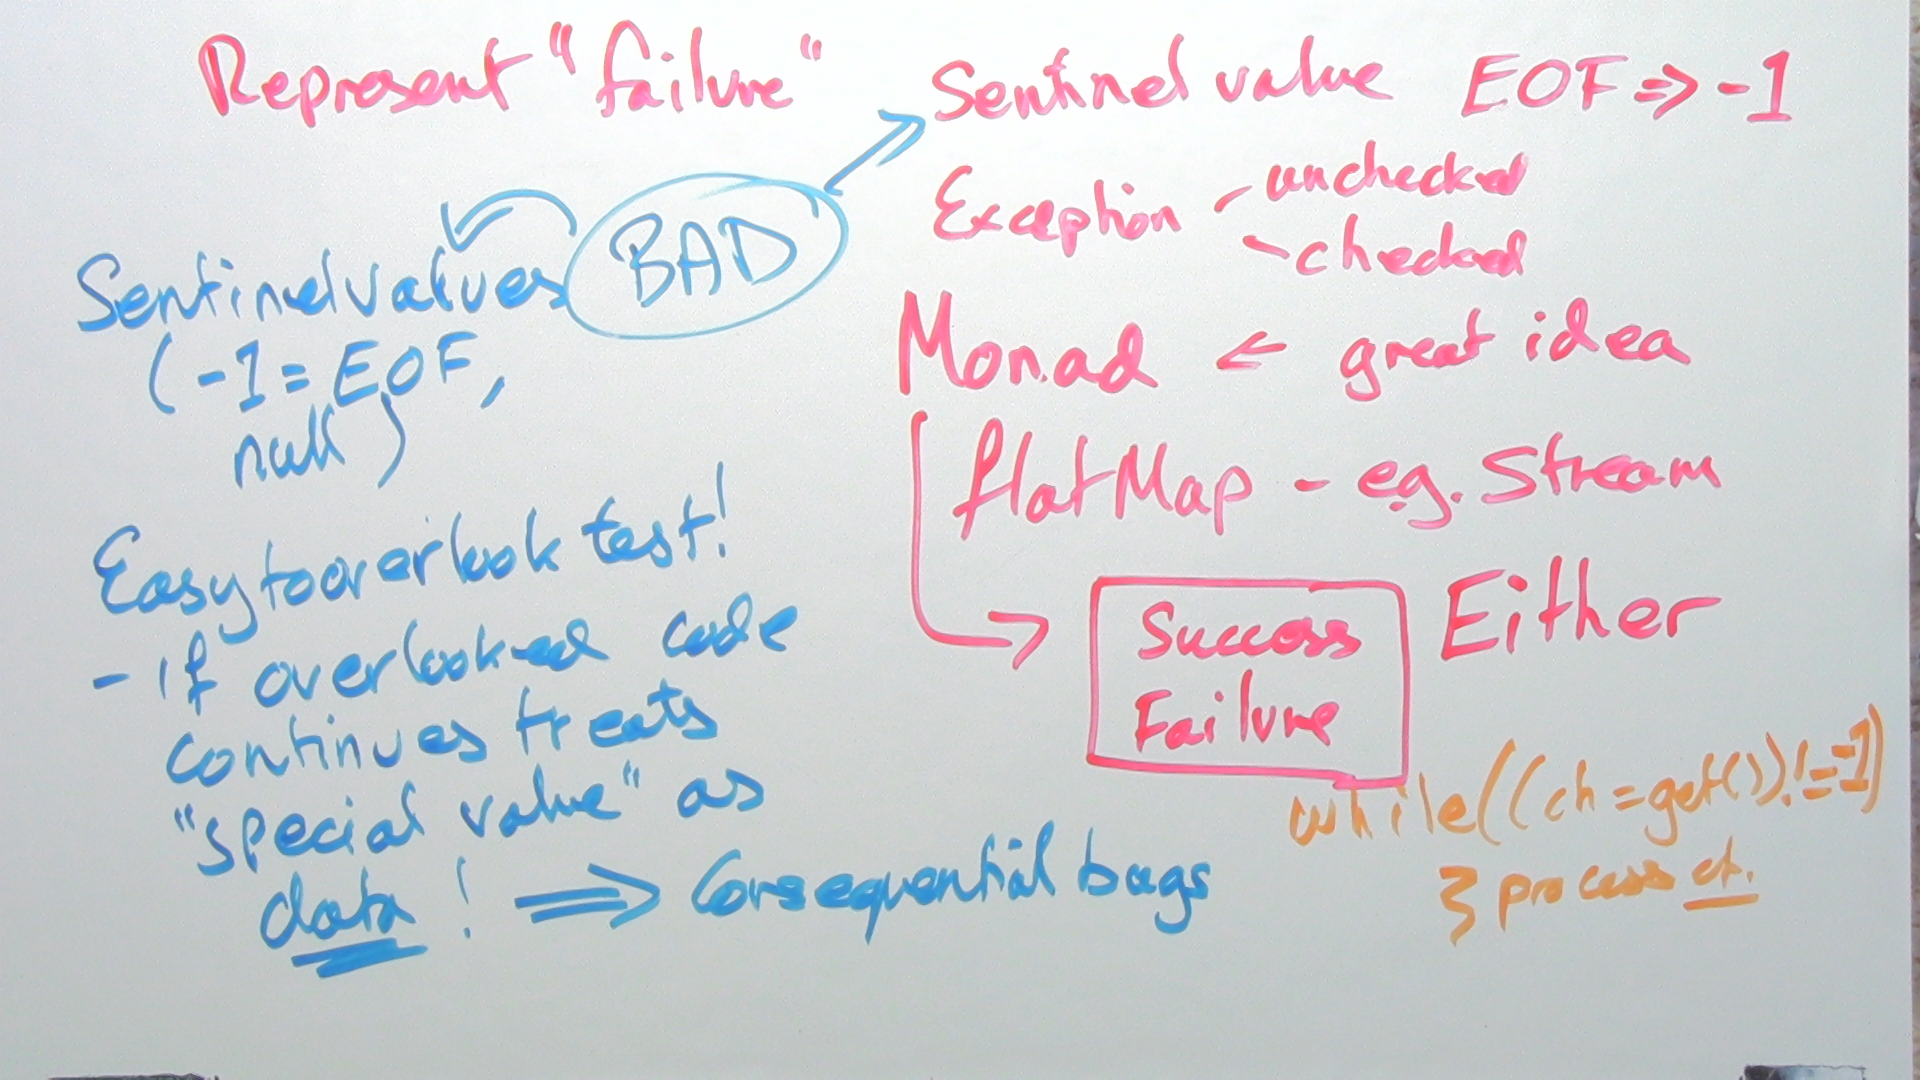 Represent "failure"
Sentinel value EOF => -1
Exception - unchecked
- checked
Monad <- great idea
flatMap - e.g. Stream
Success
Failure
Either
while((ch=get()) != -1)
{ process ch.
BAD
Sentinel values
(-1 = EOF,
null)
Easy to overlook test!
- if overlooked code
continues treats
"special value" as
data! => Consequential bugs